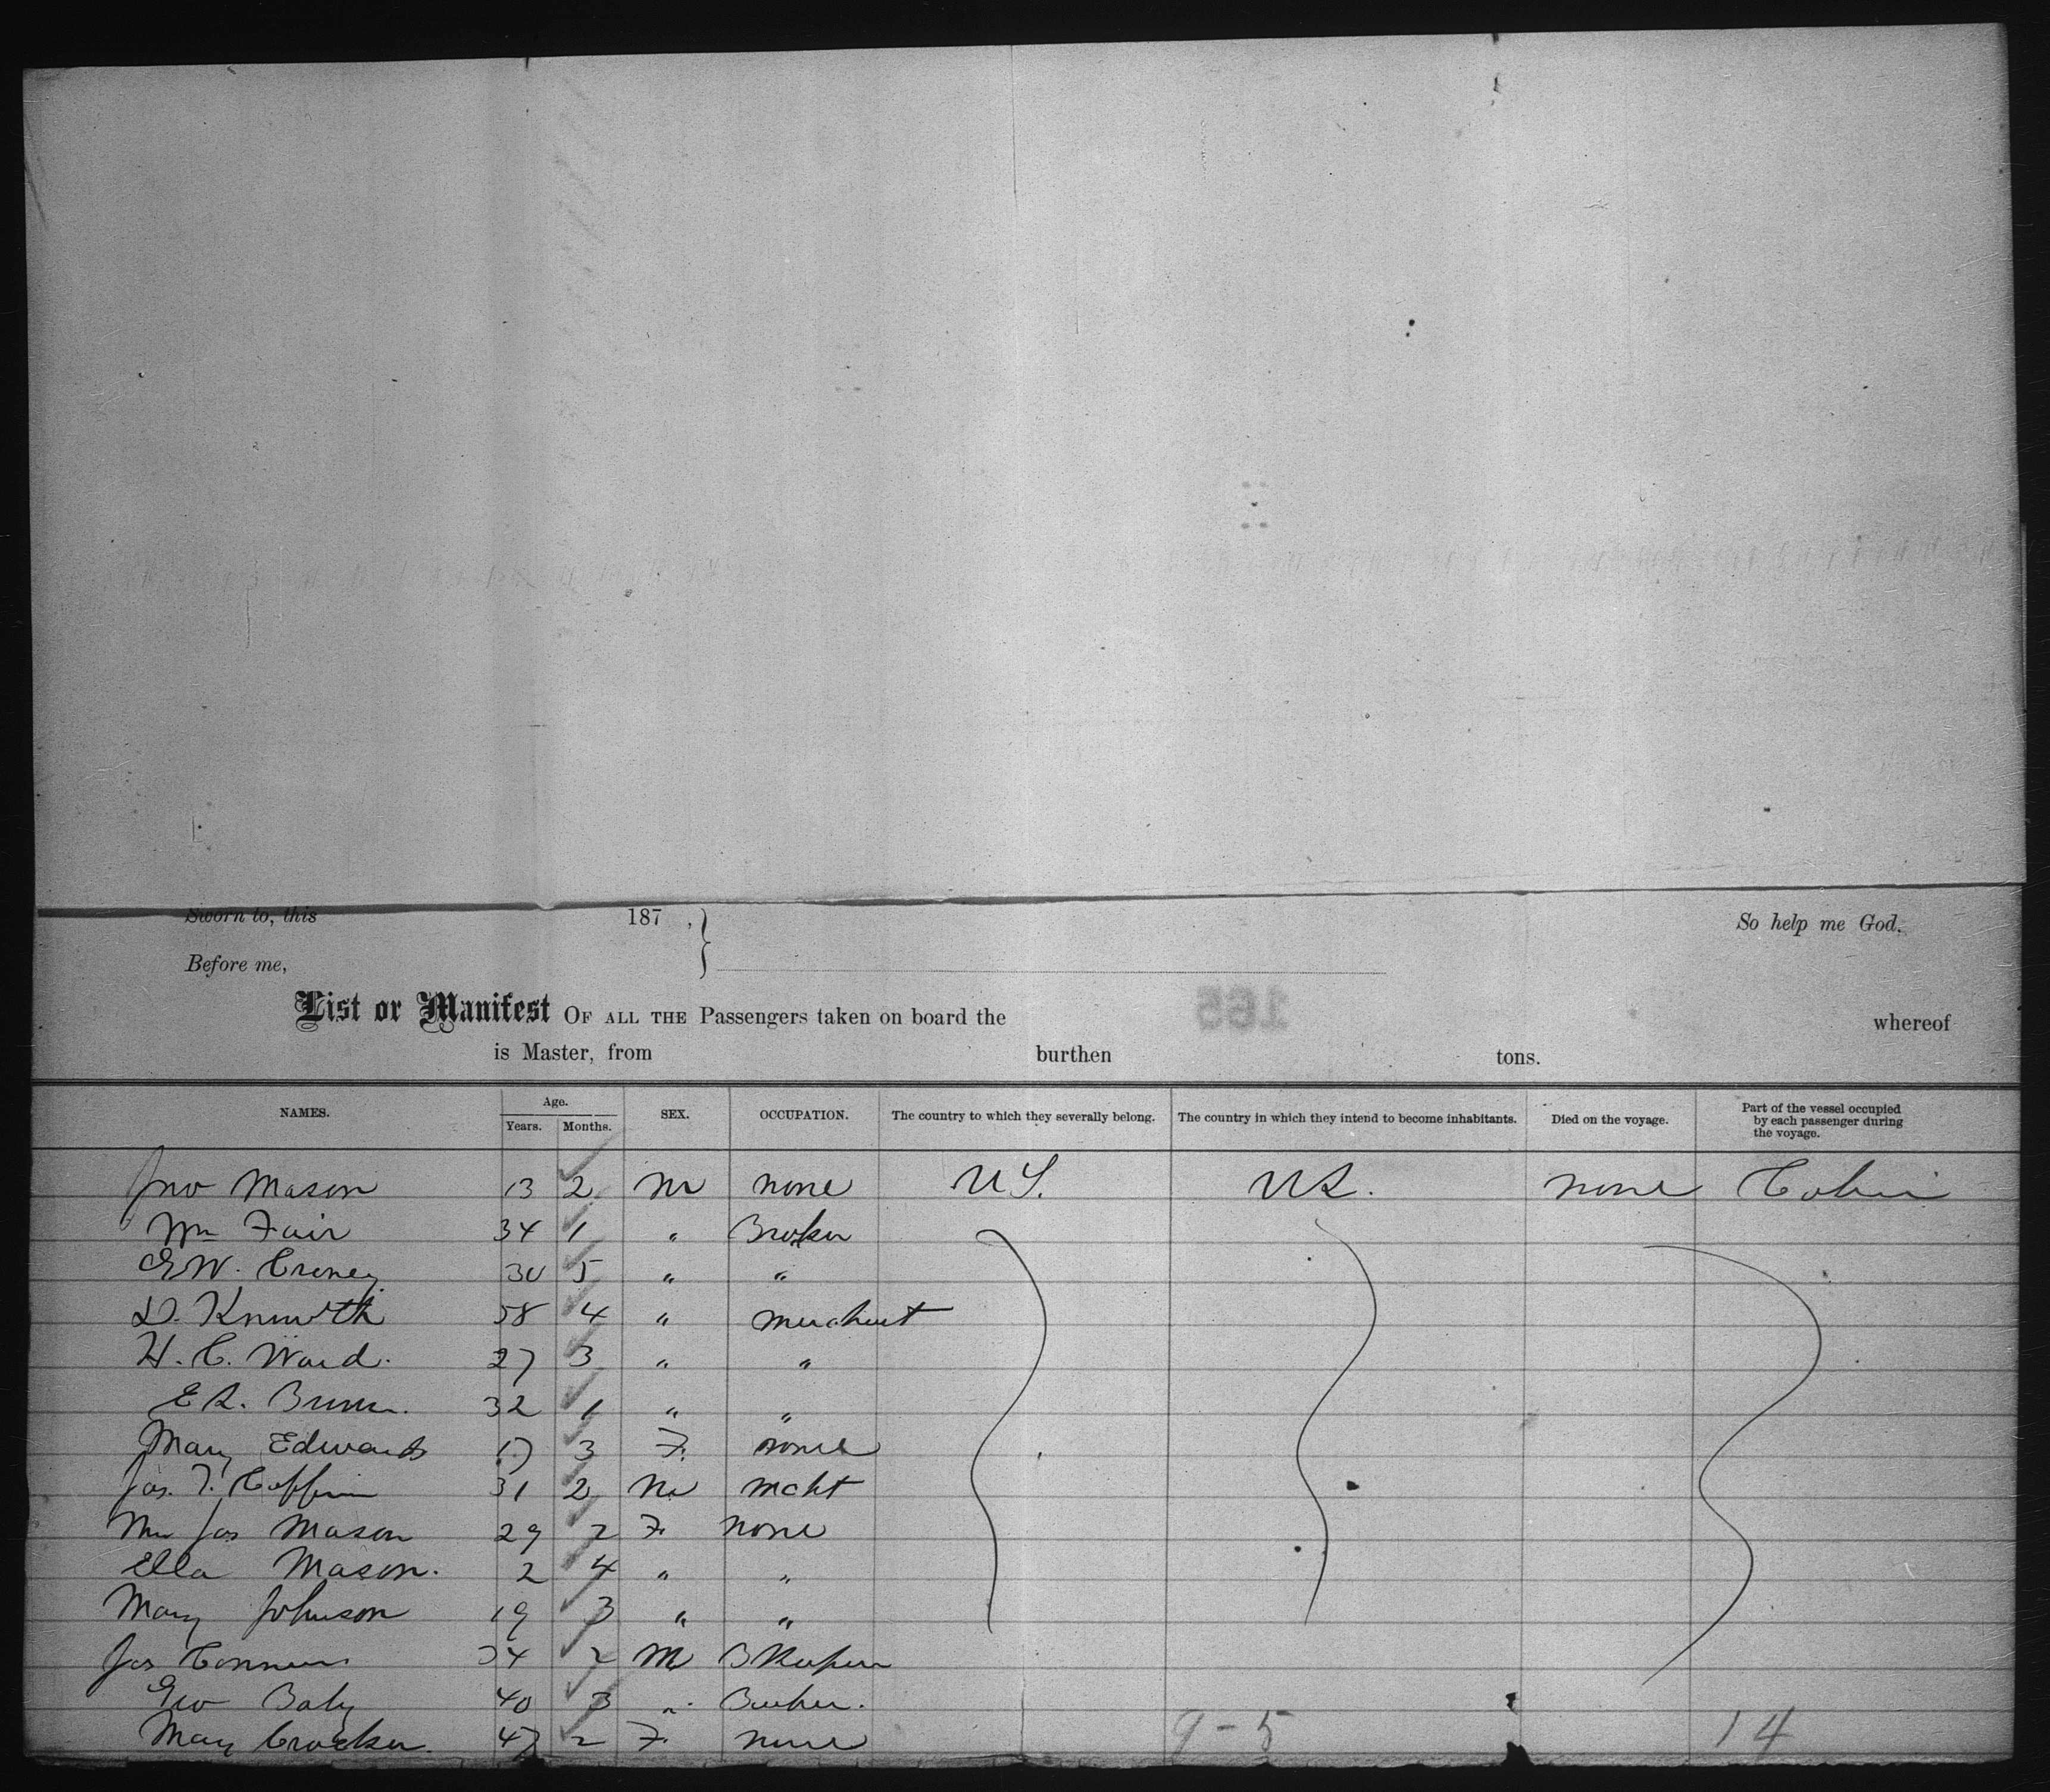 Sworn to, this 187 , So help me God,
Before me,
List or Manifest OF ALL THE Passengers taken on board the whereof
is Master, from burthen tons.
NAMES. Age. Years. Months. SEX. OCCUPATION. The country to which they severally belong. The country in which they intend to become inhabitants. Died on the voyage. Part of the vessel occupied by each passenger during the voyage.
Jno Mason 13 2 M none US. US. none Cabin
Wm Fair 34 1 " Broker
E W. 30 5 " "
D. 58 4 " Merchant
H. C. Ward. 27 3 " "
32 1 " "
Mary Edwards 17 3 F. none
Jas. T. Coffin 31 2 M mcht
Jas Mason 29 2 F. none
Ella Mason. 2 4 " "
Mary Johnson 19 3 " "
Jas 34 2 M B Keeper
Geo 40 3 "
Mary Crocker. 47 2 F. none
9-5 14
165